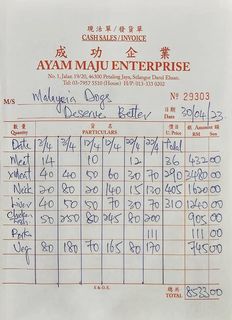 現法單/發貨單
CASH SALES / INVOICE
成功企業
AYAM MAJU ENTERPRISE
No. 1, Jalan 19/20, 46300 Petaling Jaya, Selangor Darul Ehsan.
Tel: 03-7957 5510 (House) H/P: 013-333 0202
№ 29303
M/S Malaysia Dogs Deserve Better
日期 Date 30/04/23
數量 Quantity 貨名 PARTICULARS 價目 U. Price 銀 Amount 碼 RM Sen
Date 2/4 9/4 20/4 22/4 Total
Meat 14 10 12 36 432 00
40 50 45 30 70 290 3480 00
Neck 20 80 20 140 15 130 405 1620 00
Liver 40 50 50 40 30 70 310 1240 00
Chicken 50 250 80 245 80 200 905 00
111 111 00
Veg 80 180 70 165 80 170 745 00
E. & O. E.
總共 TOTAL 8533 00